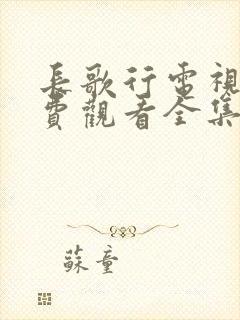 長歌行電視
費觀看全集
蘇童